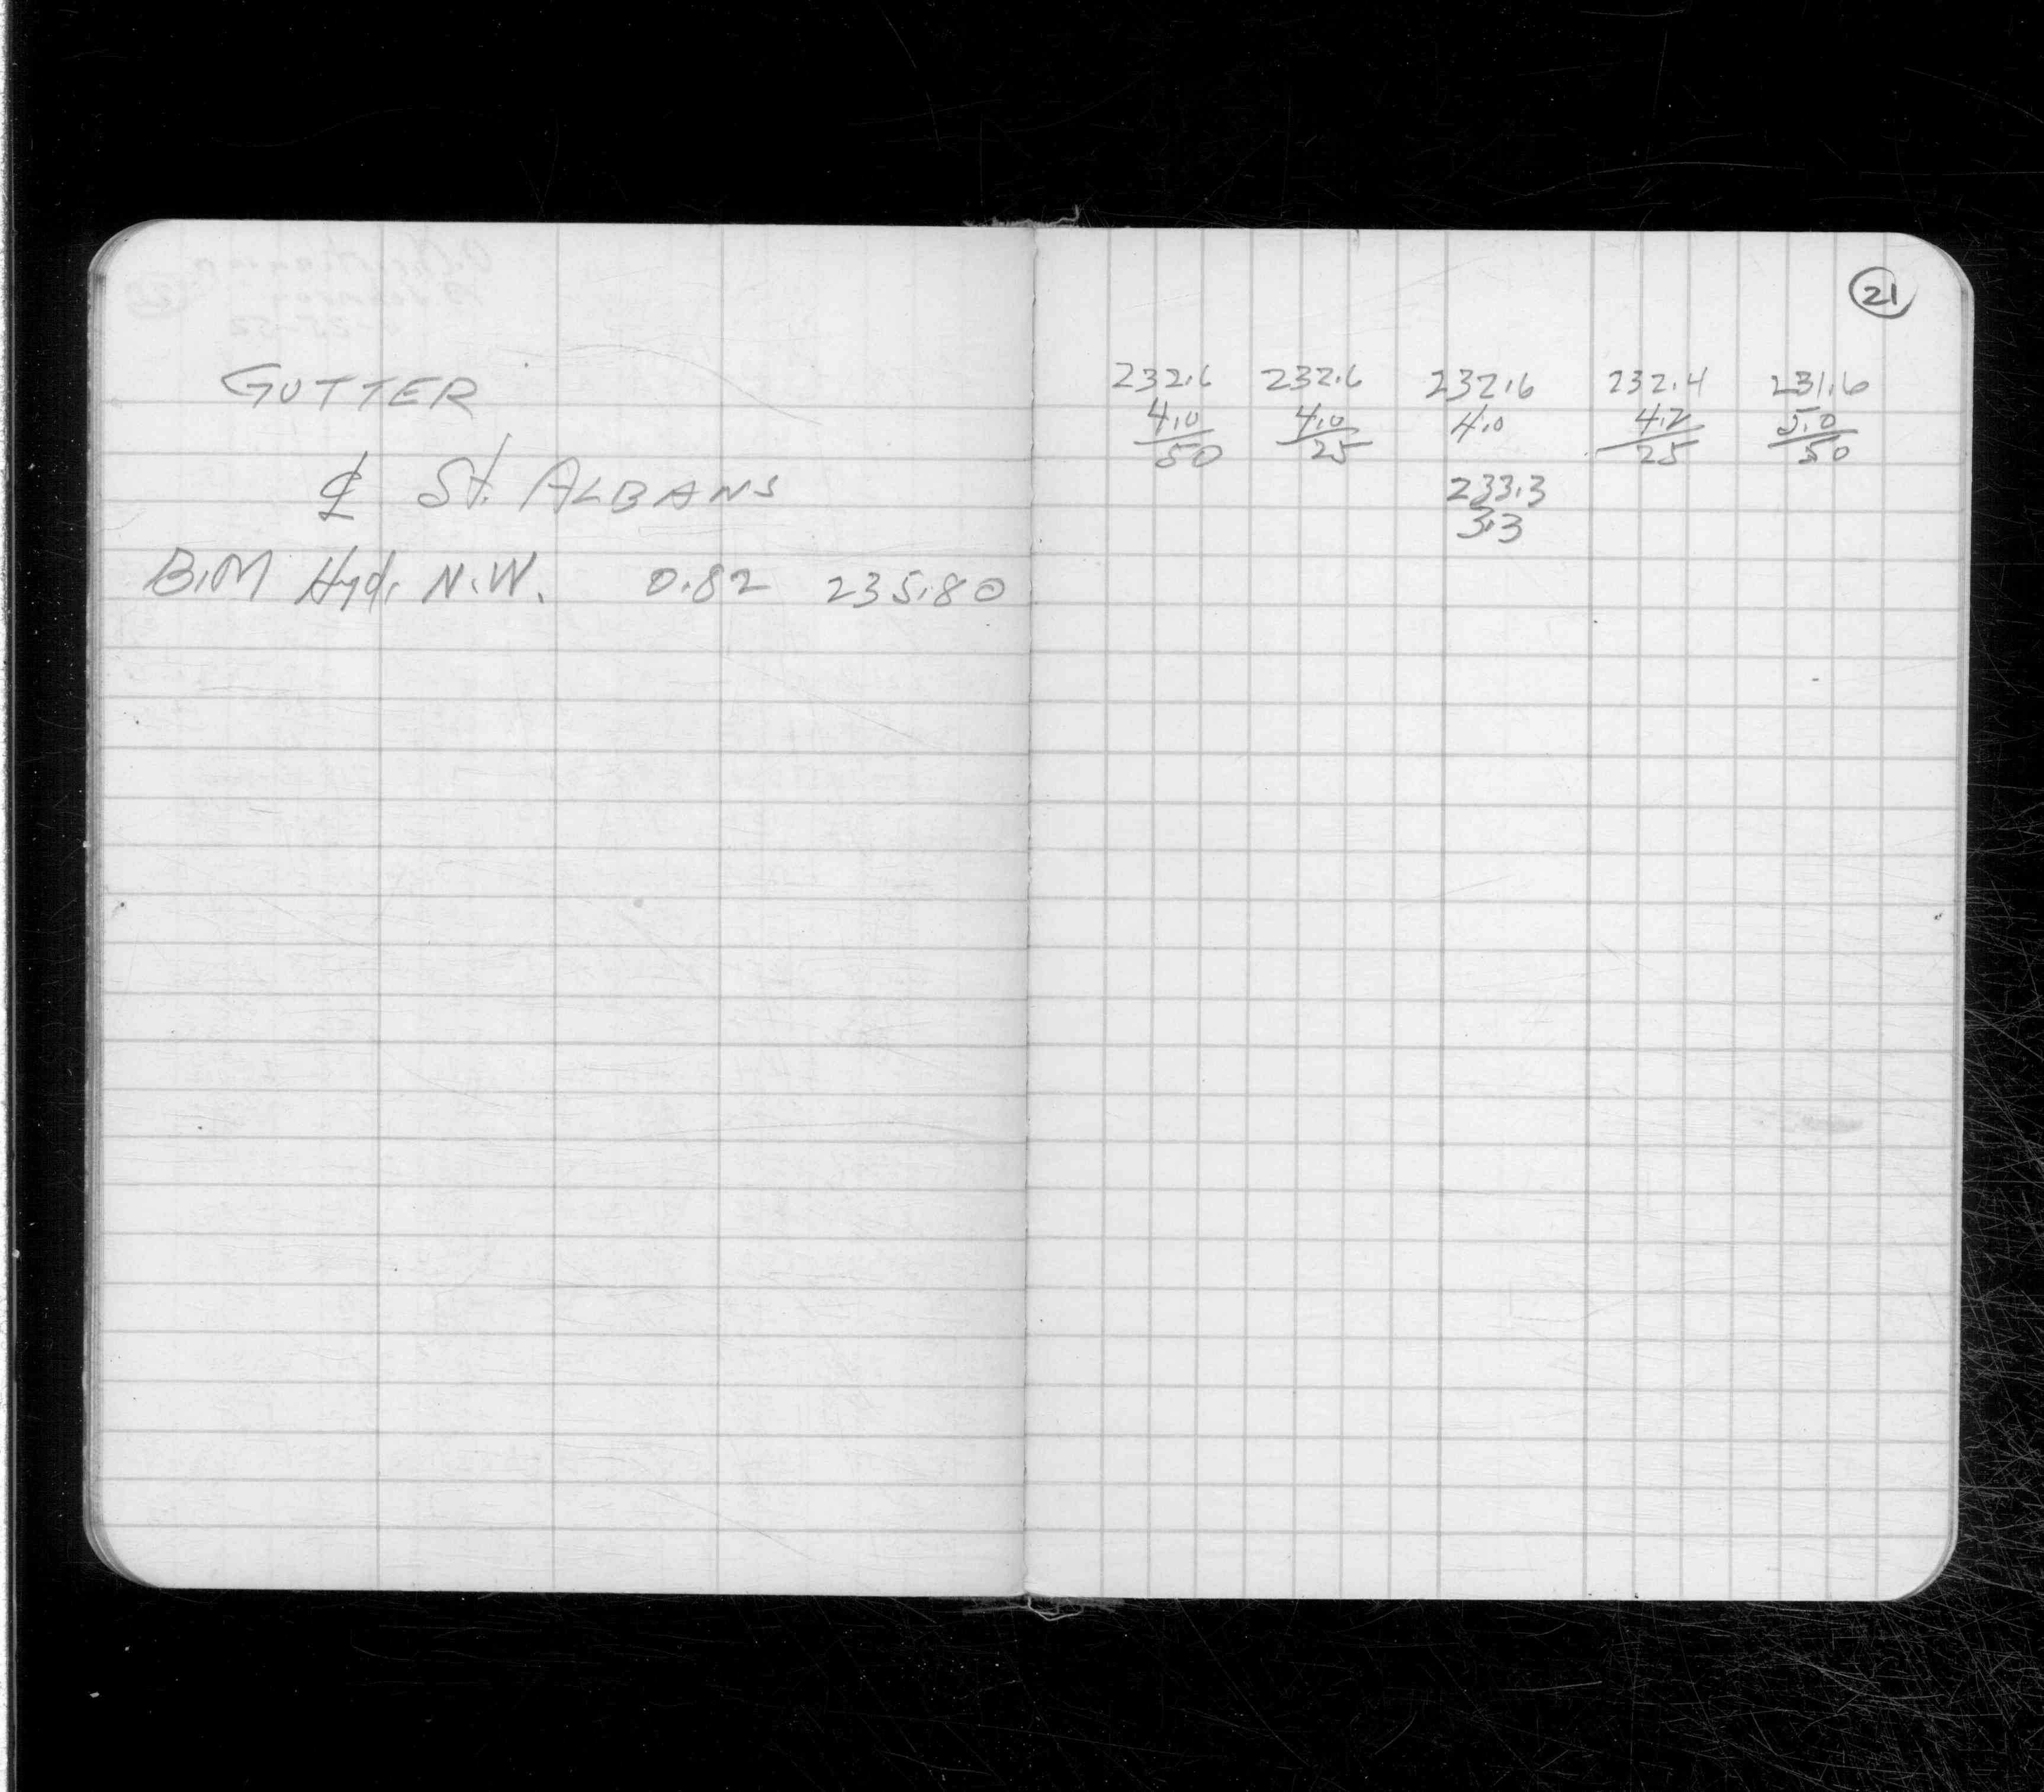 21
GUTTER 232.6 232.6 232.6 232.4 231.6
4.0 4.0 4.0 4.2 5.0
50 25 25 50
℄ St. ALBANS 233.3
3.3
B.M Hyd. N.W. 0.82 235.80